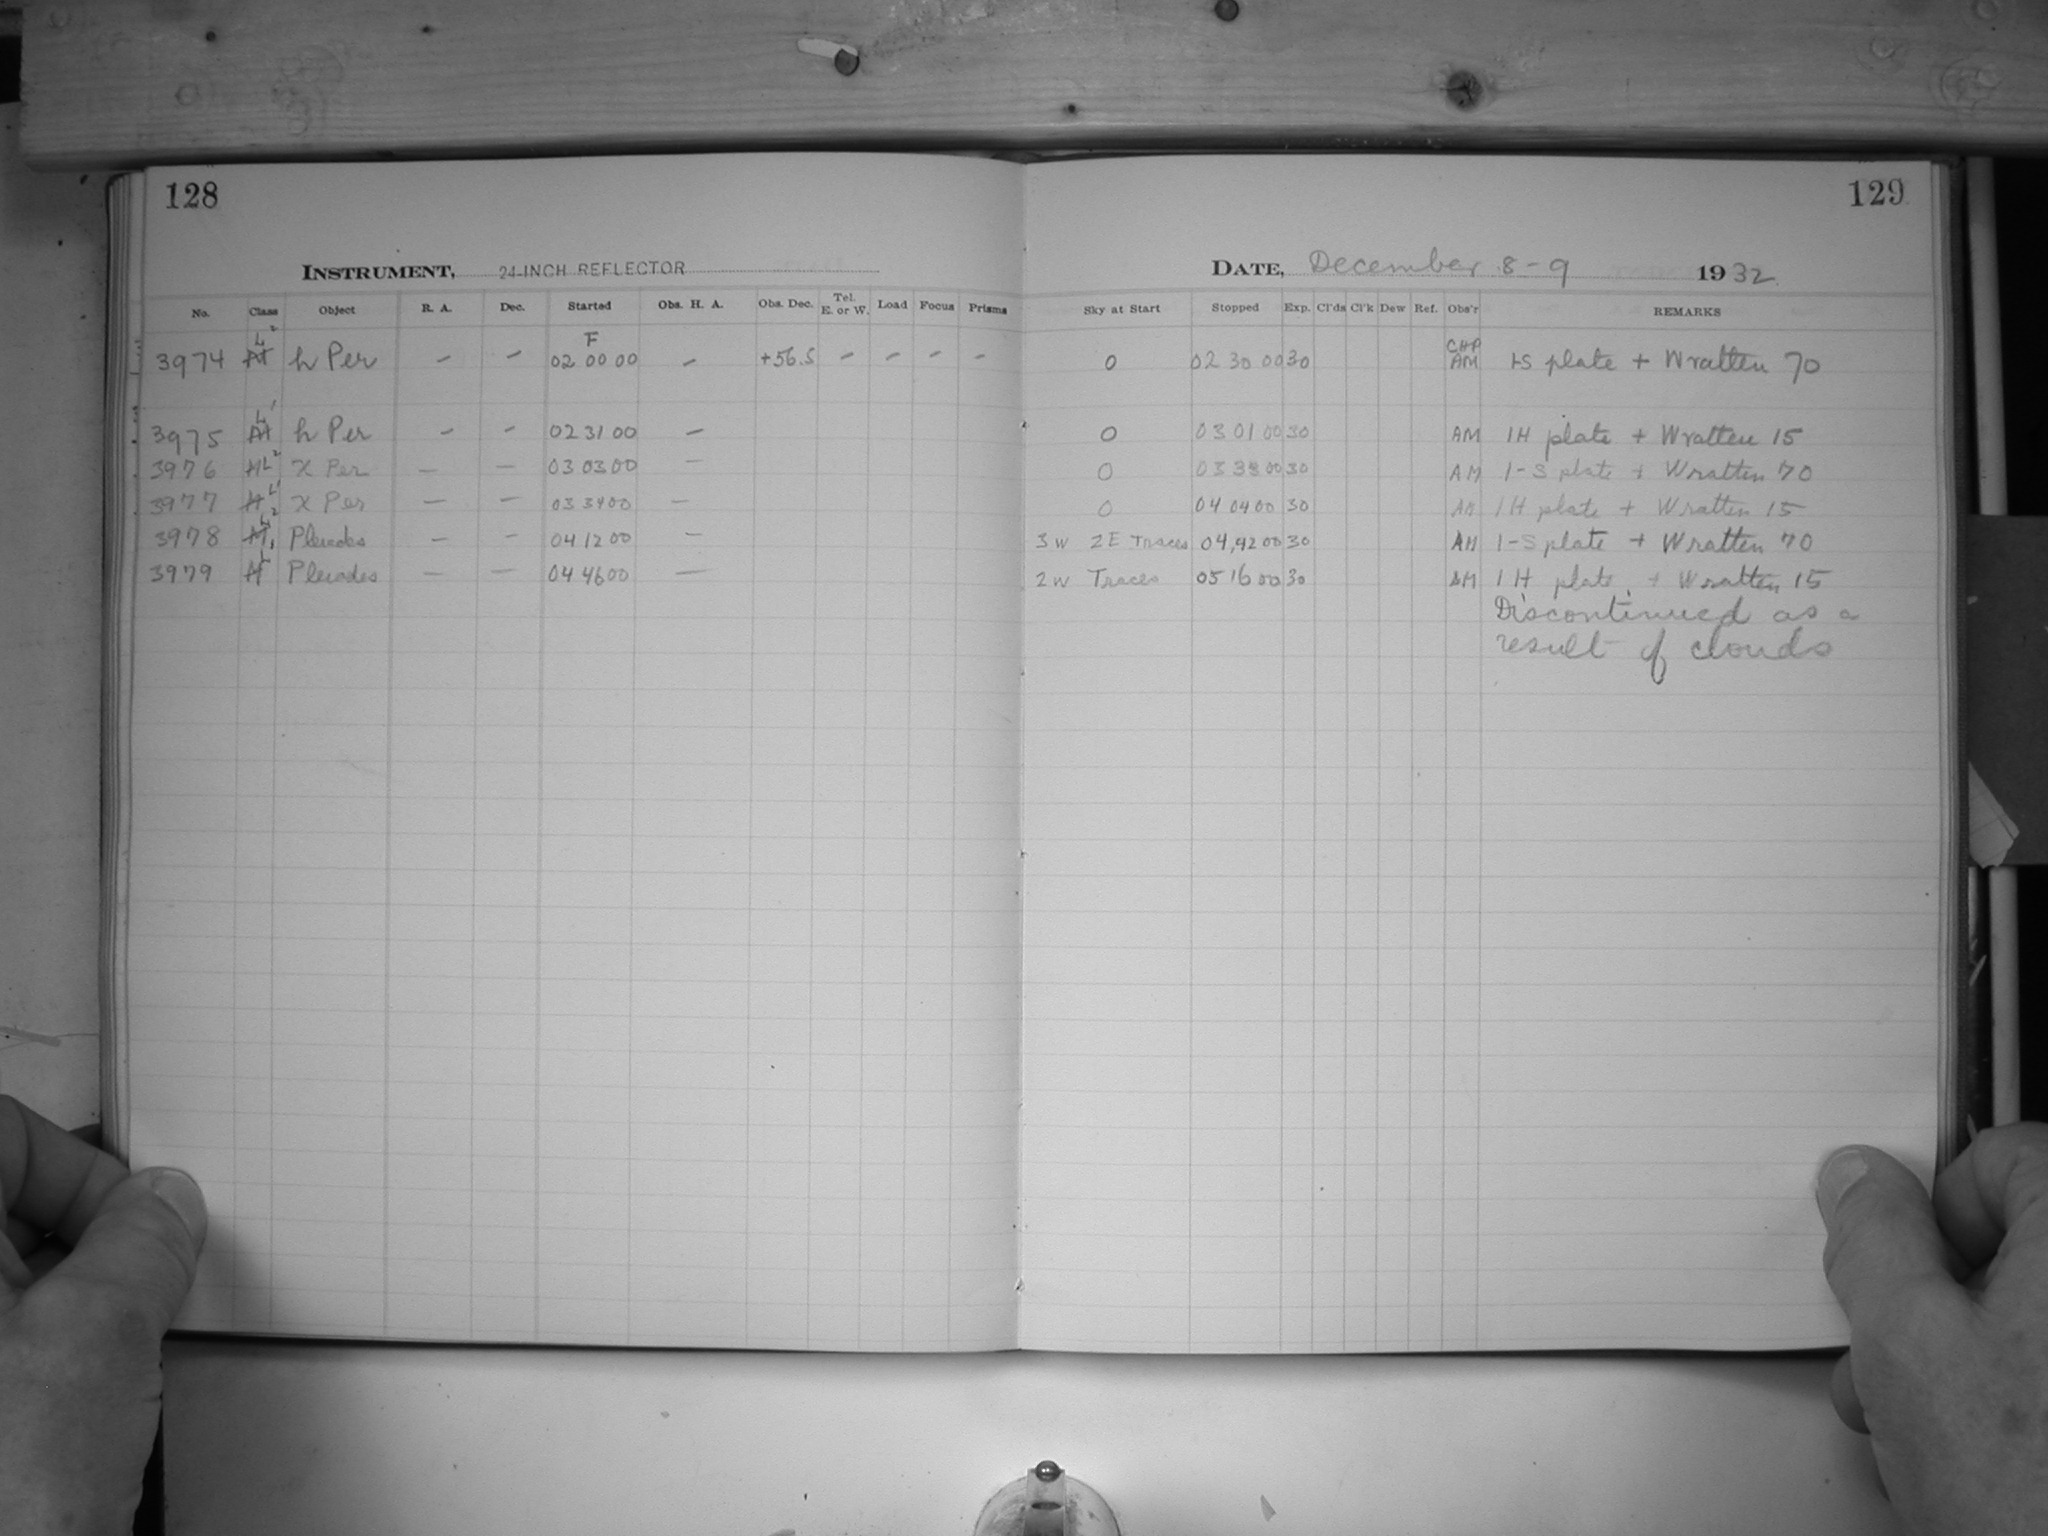 128
129
INSTRUMENT, 24-INCH REFLECTOR
DATE, December 8-9 1932
No. Class Object R. A. Dec. Started Obs. H. A. Obs. Dec. Tel. E. or W. Load Focus Prisms Sky at Start Stopped Exp. Cl'ds Cl'k Dew Ref. Obs'r REMARKS
L2 F CHP
3974 h Per – – 02 00 00 – +56.5 – – – – 0 02 30 00 30 AM 1-S plate + Wratten 70
3975 L1 h Per – – 02 31 00 – 0 03 01 00 30 AM 1H plate + Wratten 15
3976 L2 X Per – – 03 03 00 – 0 03 33 00 30 AM 1-S plate + Wratten 70
3977 L1 X Per – – 03 34 00 – 0 04 04 00 30 AM 1H plate + Wratten 15
3978 L2 Pleiades – – 04 12 00 – 3 W 2 E Traces 04,42 00 30 AM 1-S plate + Wratten 70
3979 L1 Pleiades – – 04 46 00 – 2 W Traces 05 16 00 30 AM 1 H plate + Wratten 15
Discontinued as a
result of clouds